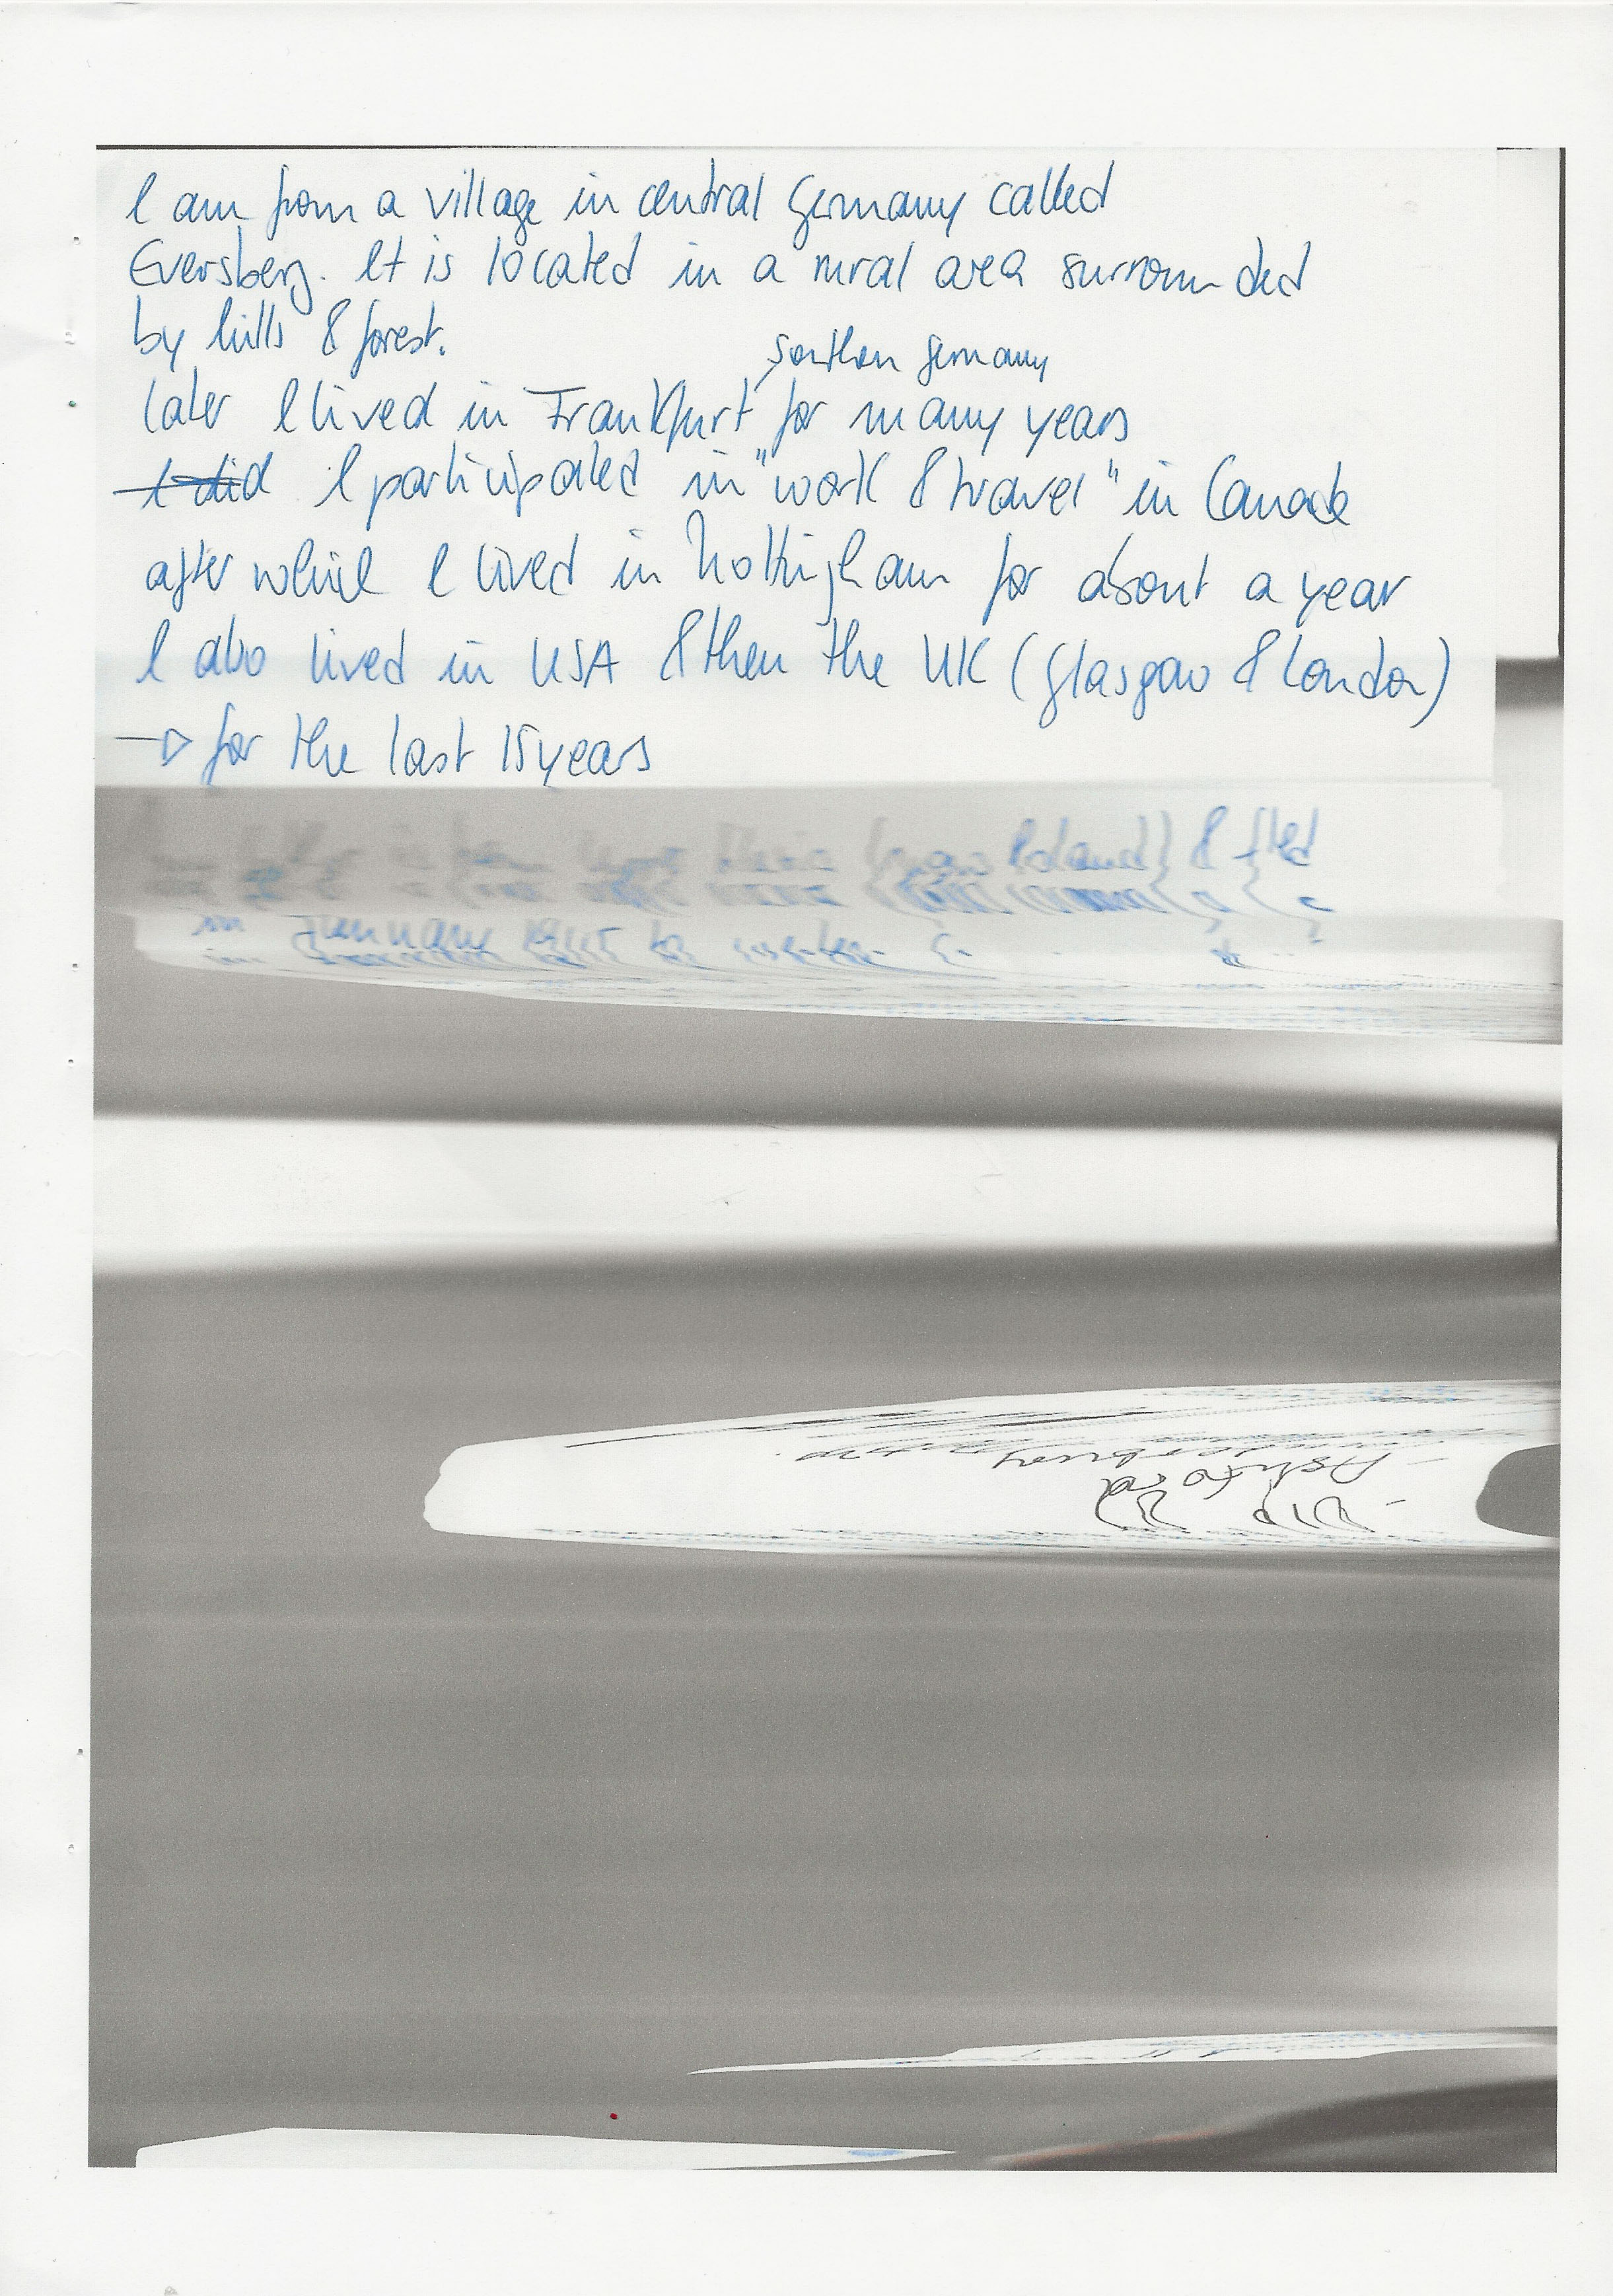 I am from a village in central Germany called
Eversberg. It is located in a rural area surrounded
by hills & forest.
southern Germany
Later I lived in Frankfurt for many years
I did I participated in "work & travel" in Canada
after which I lived in Nottingham for about a year
I also lived in USA & then the UK (Glasgow & London)
→ for the last 15 years
Poland) & fled
in January 1945
Ashford